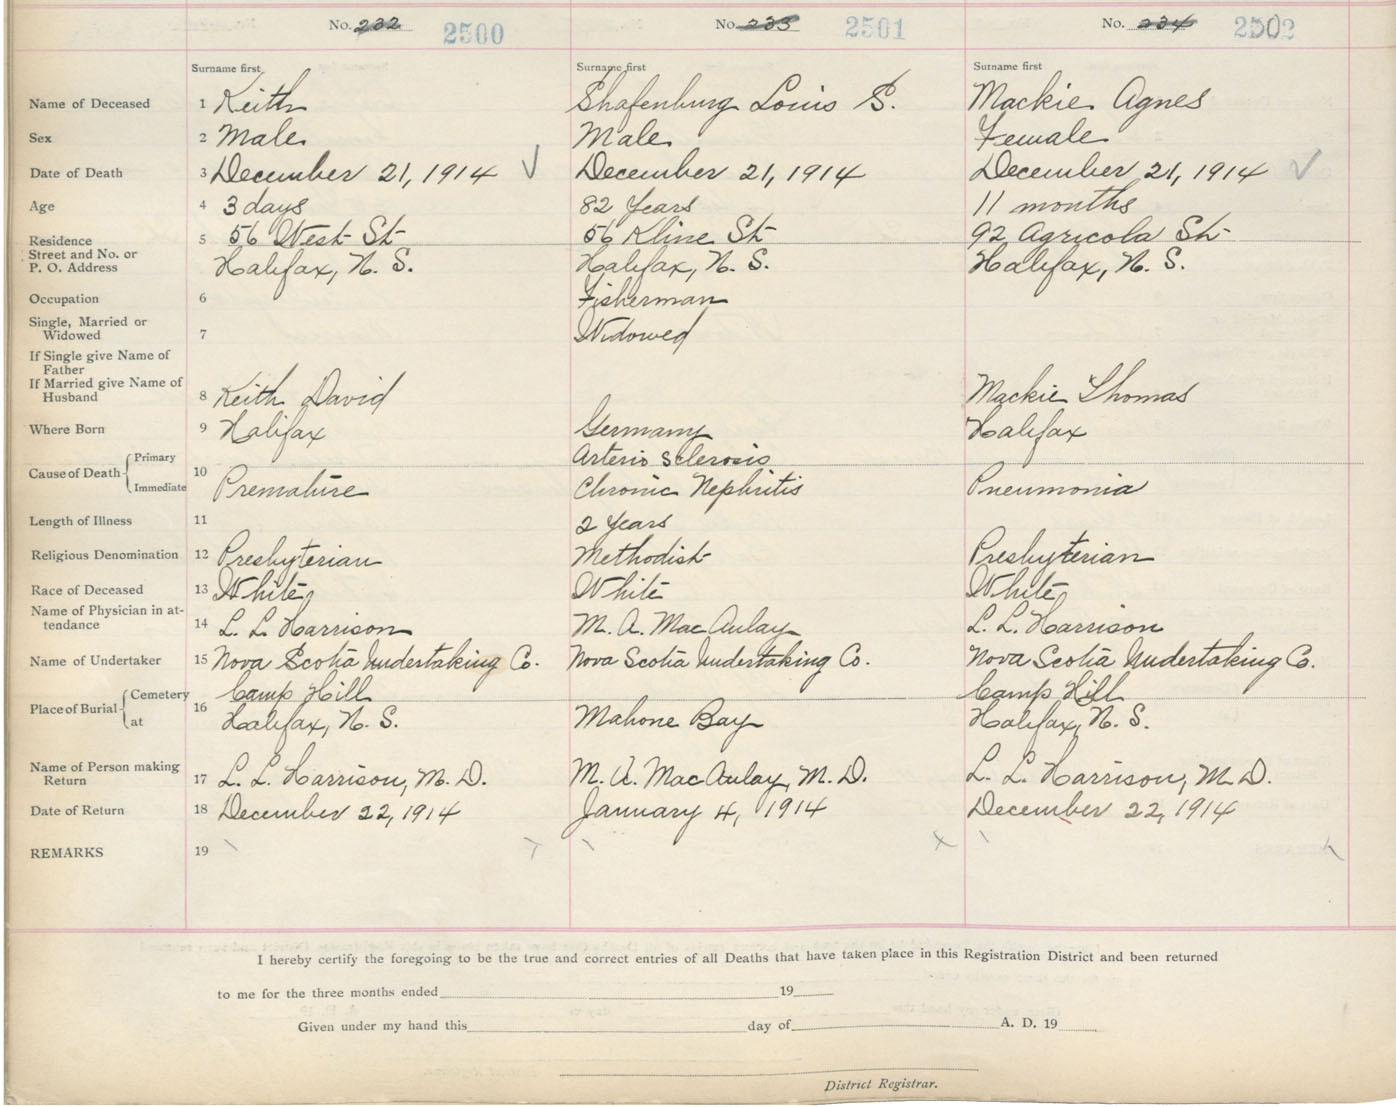 No. 232 2500 No. 233 2501 No. 234 2502
Surname first Surname first Surname first
Name of Deceased 1 Keith Shafenburg Louis S. Mackie Agnes
Sex 2 Male Male Female
Date of Death 3 December 21, 1914 ✓ December 21, 1914 December 21, 1914 ✓
Age 4 3 days 82 Years 11 months
Residence 5 56 West St 56 Kline St 92 Agricola St
Street and No. or
P. O. Address Halifax, N. S. Halifax, N. S. Halifax, N. S.
Occupation 6 Fisherman
Single, Married or
Widowed 7 Widowed
If Single give Name of
Father
If Married give Name of
Husband 8 Keith David Mackie Thomas
Where Born 9 Halifax Germany Halifax
Cause of Death Primary 10 Arterio Sclerosis
Immediate Premature Chronic Nephritis Pneumonia
Length of Illness 11 2 Years
Religious Denomination 12 Presbyterian Methodist Presbyterian
Race of Deceased 13 White White White
Name of Physician in at-
tendance 14 L. L. Harrison M. A. MacAulay L. L. Harrison
Name of Undertaker 15 Nova Scotia Undertaking Co. Nova Scotia Undertaking Co. Nova Scotia Undertaking Co.
Place of Burial Cemetery 16 Camp Hill Camp Hill
at Halifax, N. S. Mahone Bay Halifax, N. S.
Name of Person making
Return 17 L. L. Harrison, M. D. M. A. MacAulay, M. D. L. L. Harrison, M. D.
Date of Return 18 December 22, 1914 January 4, 1914 December 22, 1914
REMARKS 19
I hereby certify the foregoing to be the true and correct entries of all Deaths that have taken place in this Registration District and been returned
to me for the three months ended 19
Given under my hand this day of A. D. 19
District Registrar.